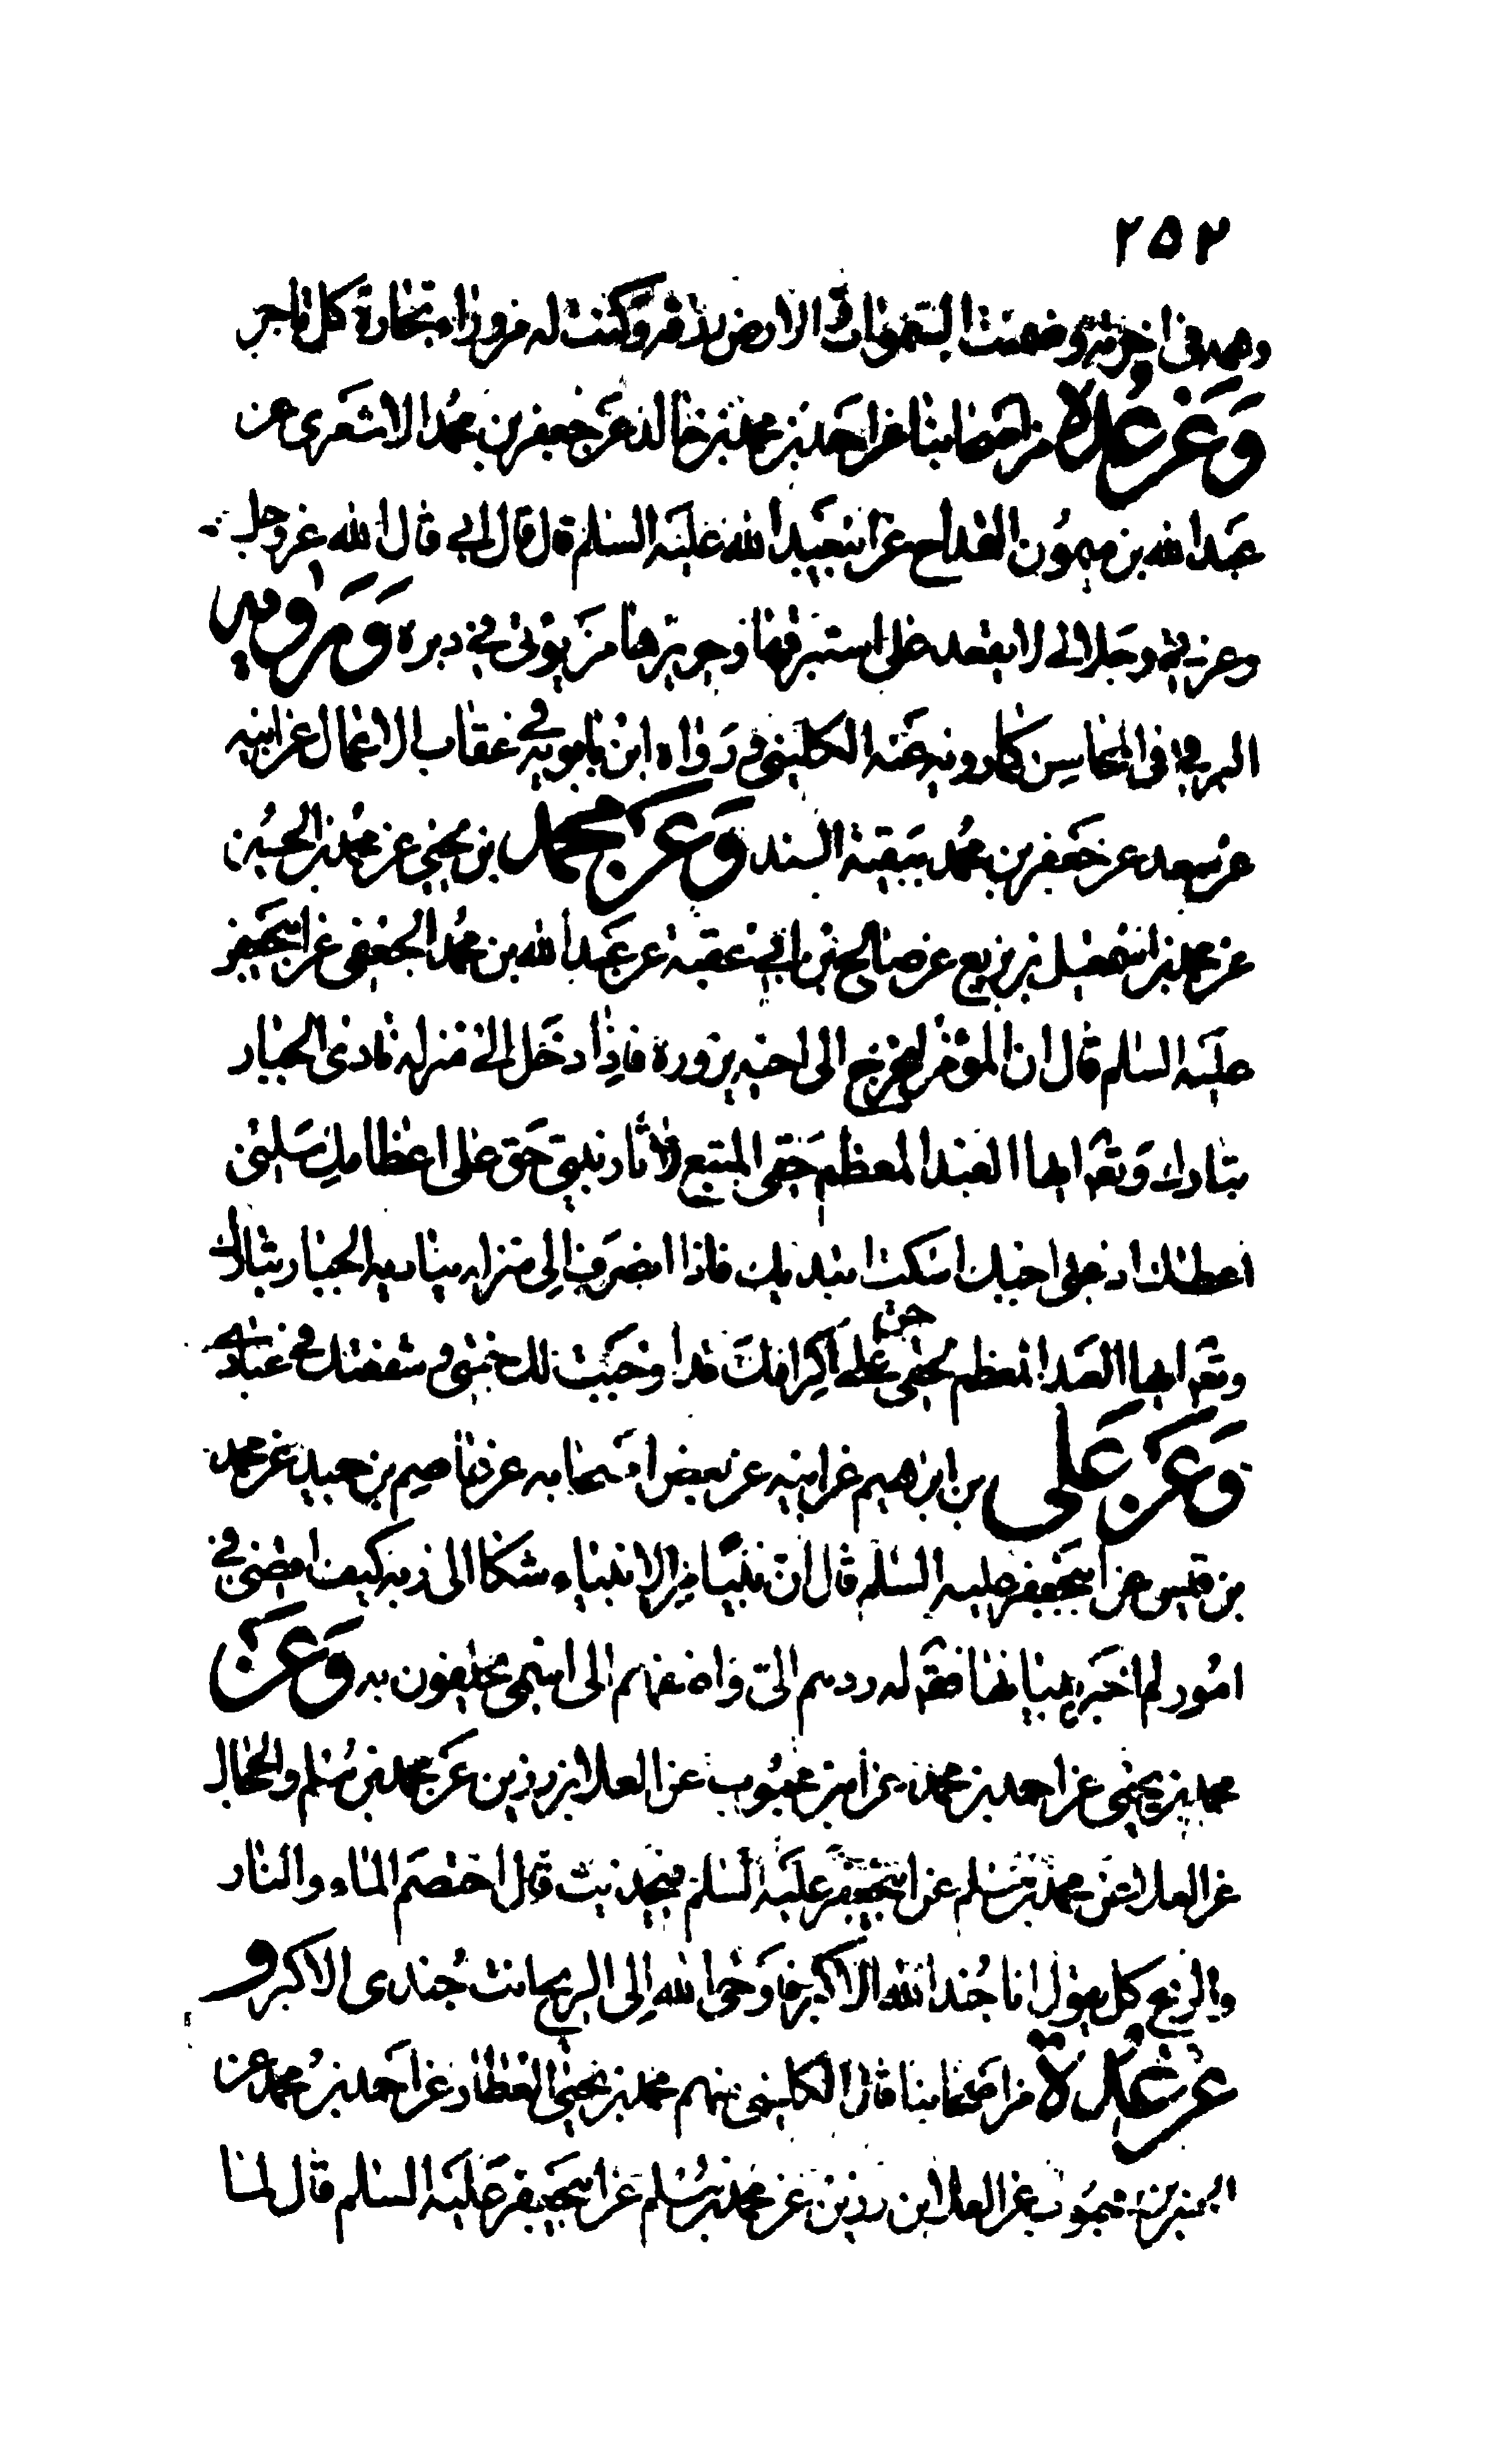 ٢٥٢
وهمه في اخرته وضمنت السموات والارض رزقه وكنت له من وراء تجارة كل تاجر
وَعَن عُدة من اصحابنا عن احمد بن محمد بن خالد عن جعفر بن محمد الاشعري عن
عبد الله بن ميمون القداح عن ابيعبد الله عليه السلم قال قال ابي قال الله عز وجل
وعزتي وجلالي لا يقعد على استبرقها وحريرها من يؤتى في دبره وَرواه
البرقي في المحاسن كما رويه عنه الكليني ورواه ابن بابويه في عقاب الاعمال عن ابيه
عن سعد عن جعفر بن محمد ببقية السند وَعَن محمد بن يحيى عن محمد بن الحسين
عن محمد بن اسمعيل بن بزيع عن صالح بن عقبة عن عبد الله بن محمد الجعفي عن ابيجعفر
عليه السلم قال ان المؤمن ليخرج الى اخيه يزوره فاذا دخل الى منزله نادى الجبار
تبارك وتعه ايها العبد المعظم حقي المتبع لاثار نبيي حق علي اعظامك سلني
اعطك ادعني اجبك اسكت ابتديك فاذا انصرف الى منزله يناديه الجبار تبارك
وتعه ايها العبد المعظم لحقي حق علي اكرامك قد اوجبت لك جنتي وشفعتك في عبادي
وَعَن عَلي بن ابرهيم عن ابيه عن بعض اصحابه عن عاصم بن حميد عن محمد
بن قيس عن ابيجعفر عليه السلم قال ان نبيا من الانبياء شكا الى ربه كيف اقضي في
امور لم اخبر ببيانها فقه له ردهم الي واضفهم الى اسمي يحلفون به وَعَن
محمد بن يحيى عن احمد بن محمد عن ابن محبوب عن العلا بن رزين عن محمد بن مسلم والحجال
عن العلا عن محمد بن مسلم عن ابيجعفر عليه السلم في حديث قال اختصم الماء والنار
والريح كل يقول انا جند الله الاكبر فاوحى الله الى الريح انت جندي الاكبر و
عن عُدة من اصحابنا قال الكليني منهم محمد بن يحيى العطار عن احمد بن محمد عن
الحسن بن محبوب عن العلا بن رزين عن محمد بن مسلم عن ابيجعفر عليه السلم قال لما